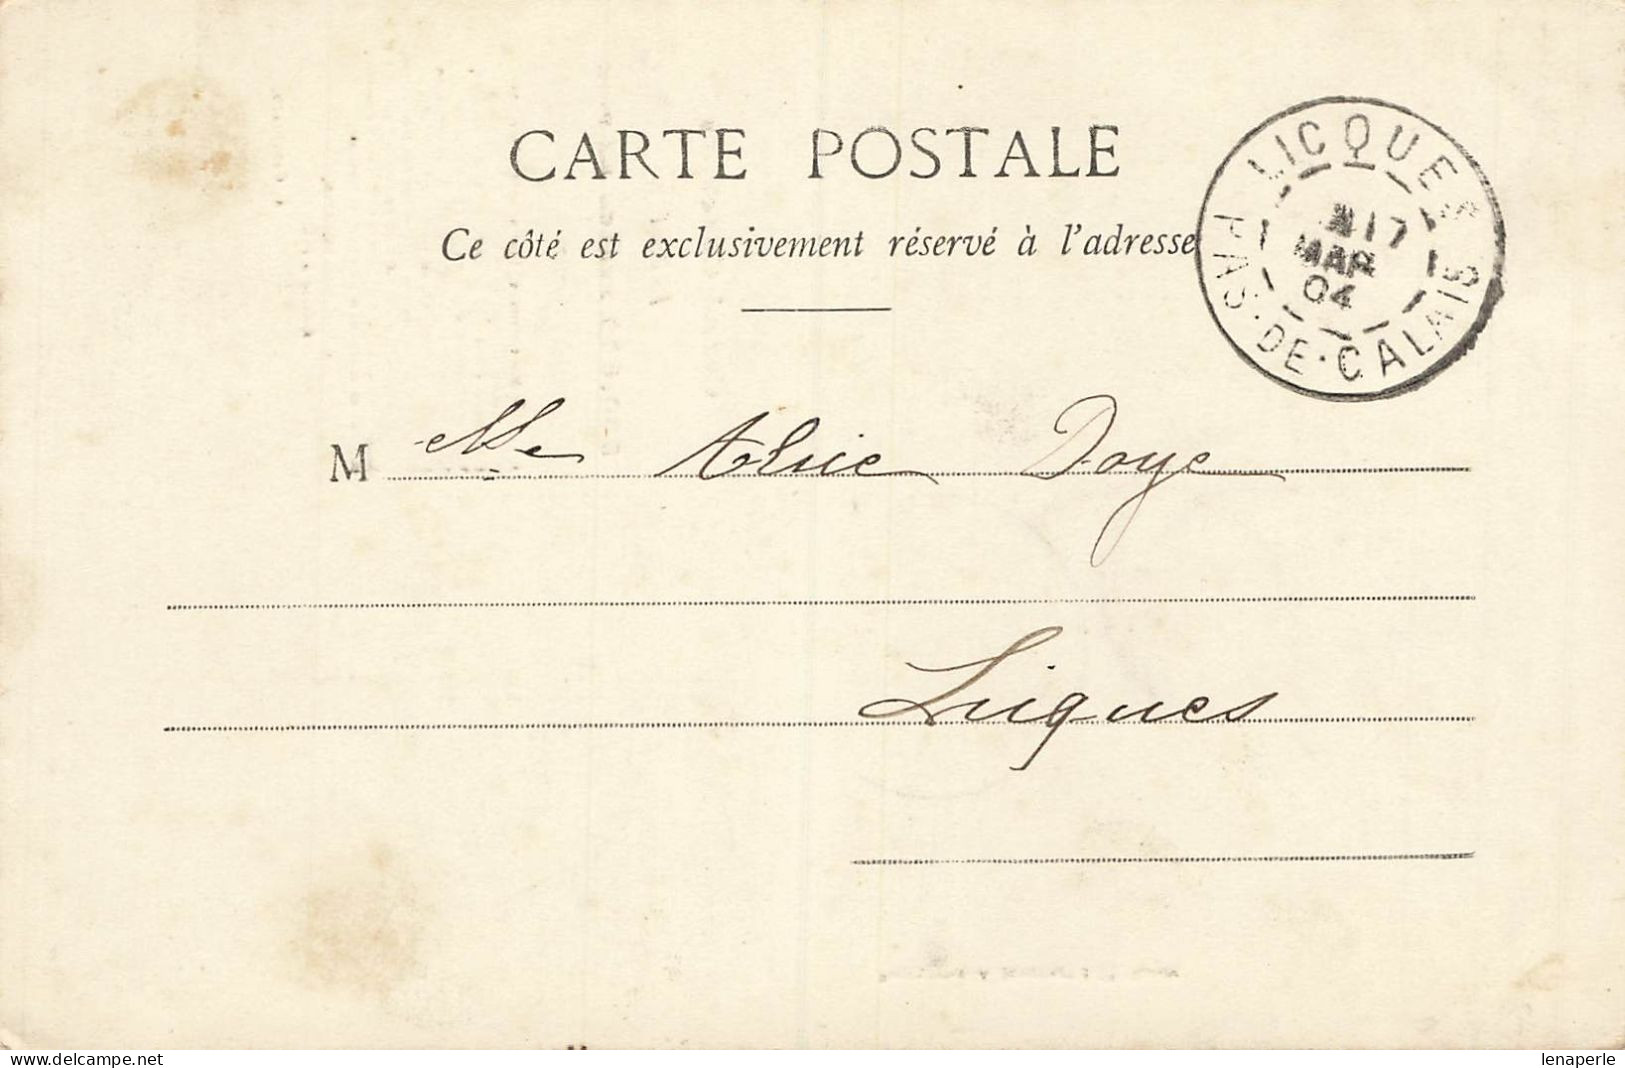 CARTE POSTALE
Ce côté est exclusivement réservé à l'adresse
LICQUES
17
MAR
04
PAS-DE-CALAIS
M elle Alice Doye
Licques
www.delcampe.net
lenaperle